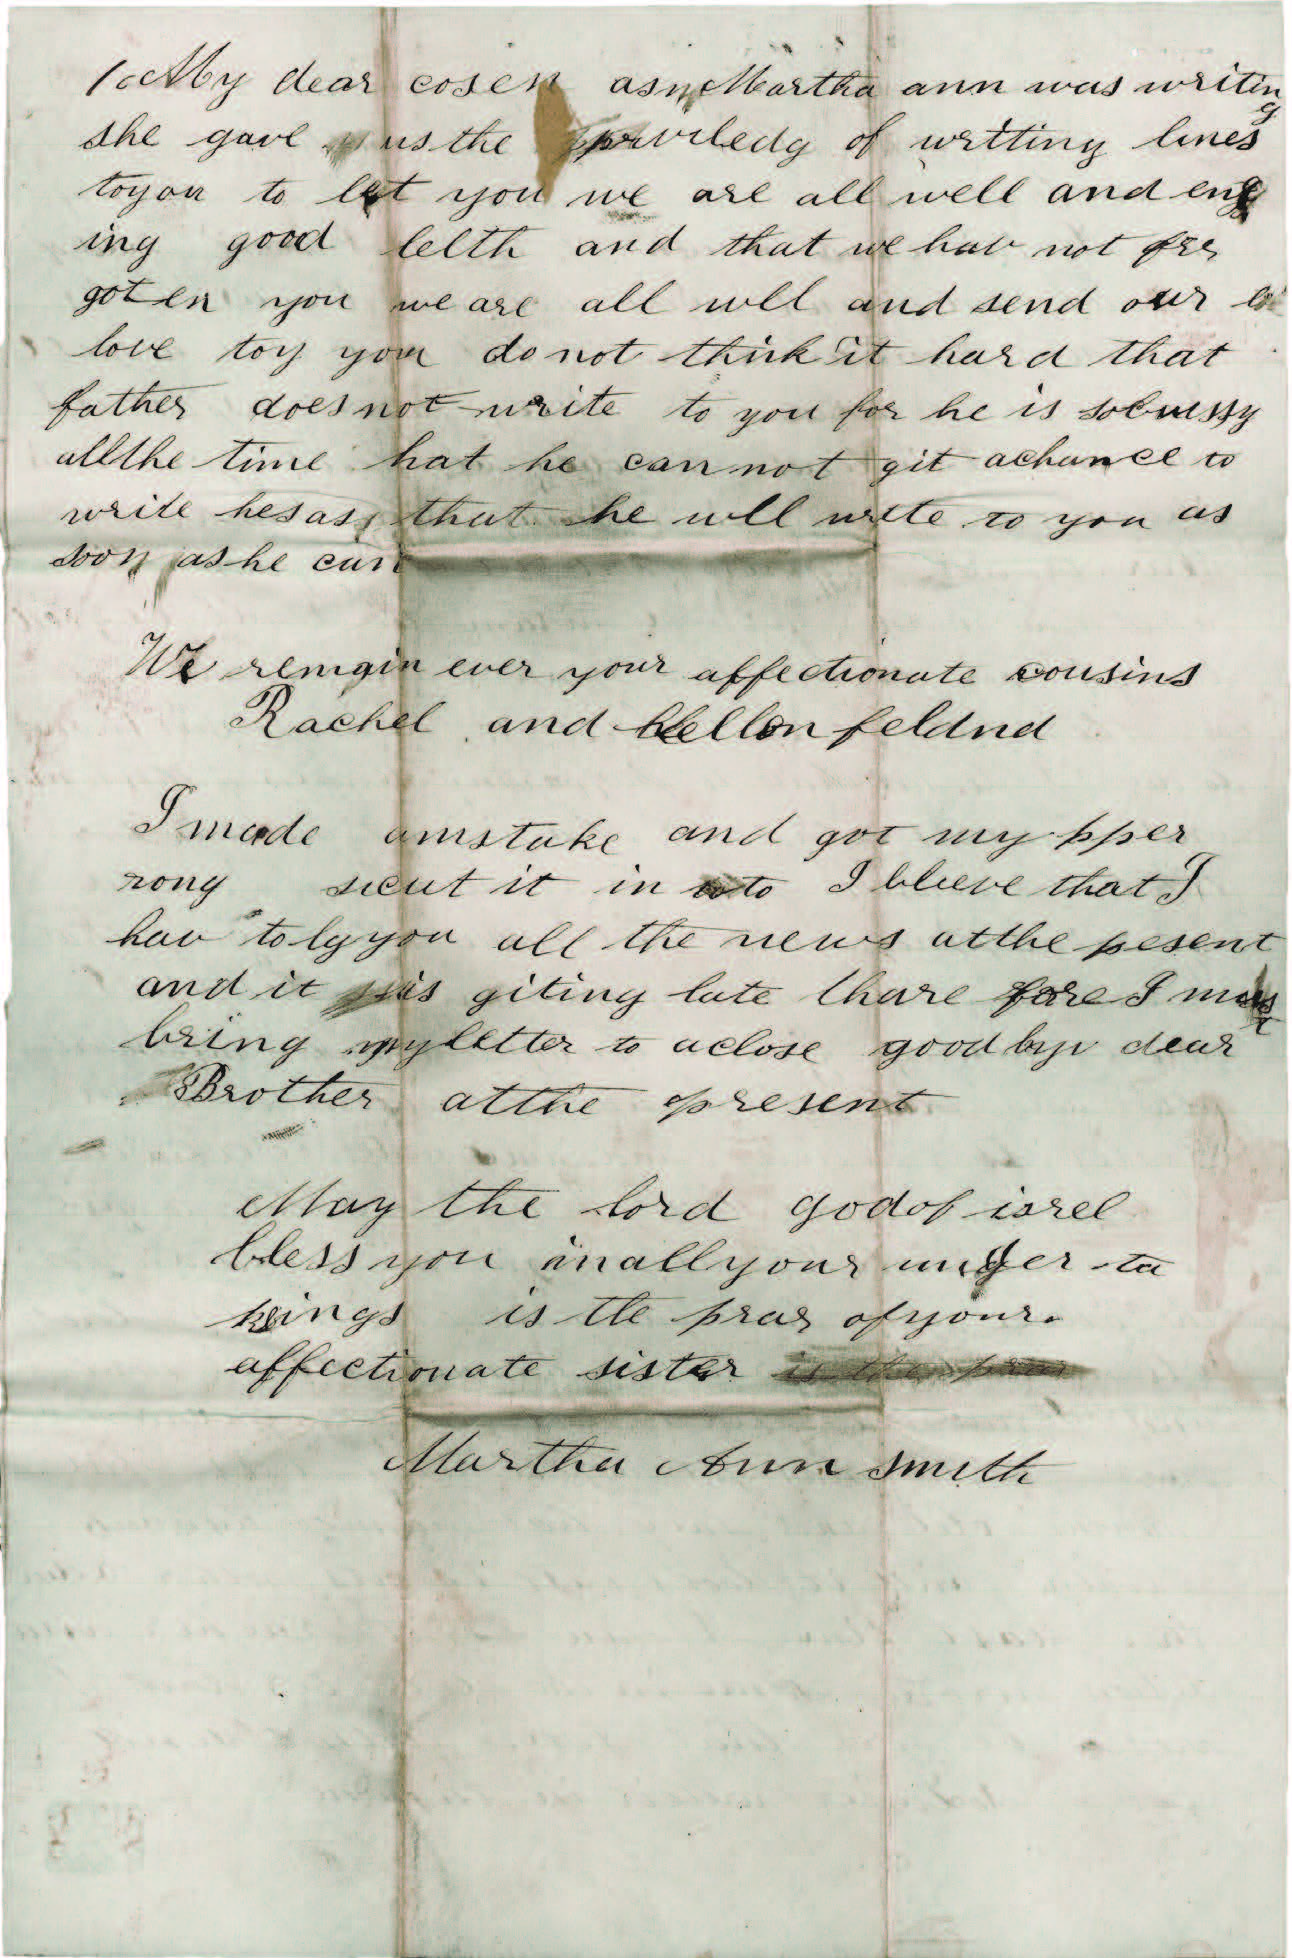 My dear cosen as Martha ann was writing
she gave us the priviledg of writting lines
toyou to let you we are all well and eng
ing good lelth and that we hav not for
goten you we are all wll and send our
love toy you do not think it hard that
father does not write to you for he is sobussy
allthe time hat he can not git achance to
write hesas that he wll wrte to you as
soon as he can
We remain ever your affectionate cousins
Rachel and Hellen feldnd
I made amstake and got my pper
rong sicut it in to I bleeve that I
hav toly you all the news atthe pesent
and it is giting late thare fore I must
bring my letter to aclose good by dear
Brother atthe present
May the lord godof isrel
bless you inallyour under ta
kings is the prar ofyour
affectionate sister is the prar
Martha Ann Smith